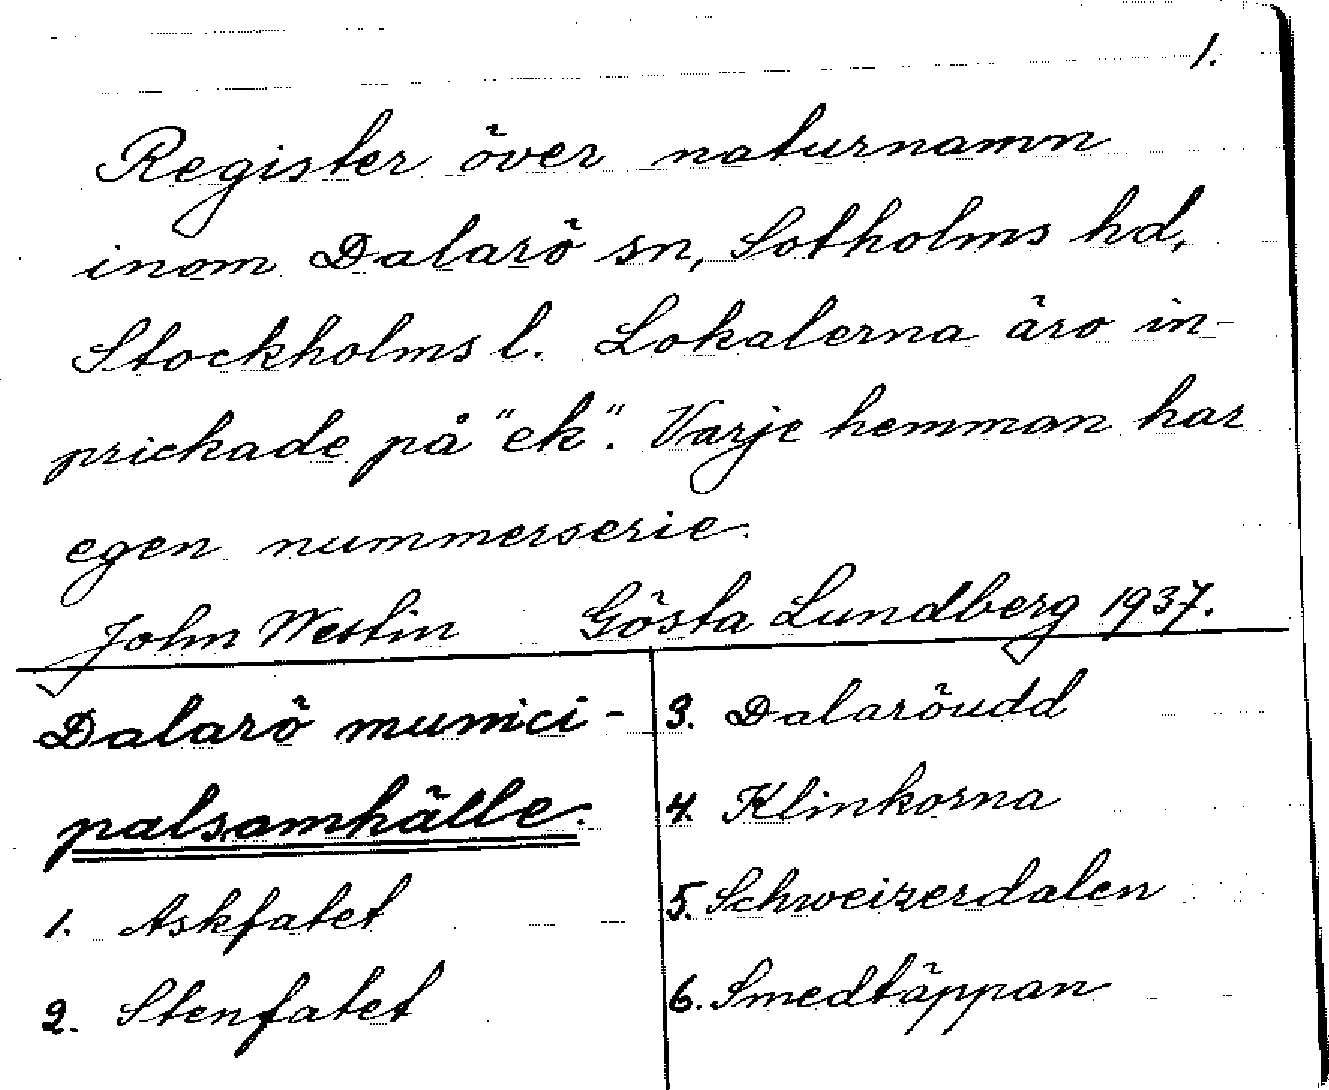 1.
Register över naturnamn
inom Dalarö sn, Sotholms hd,
Stockholms l. Lokalerna äro in-
prickade på "ek". Varje hemman har
egen nummerserie.
John Westin Gösta Lundberg 1937.
Dalarö munici-
palsamhälle.
1. Askfatet
2. Stenfatet
3. Dalaröudd
4. Klinkorna
5. Schweizerdalen
6. Smedtäppan